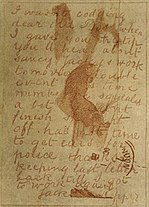 I was not codding
dear old Boss when
I gave you the tip
you'll hear about
Saucy Jacky's work
tomorrow double
event this time
number one squealed
a bit
finish
off. had time
to get ears for
police thanks for
keeping last letter
back till I got
to work again
Jack